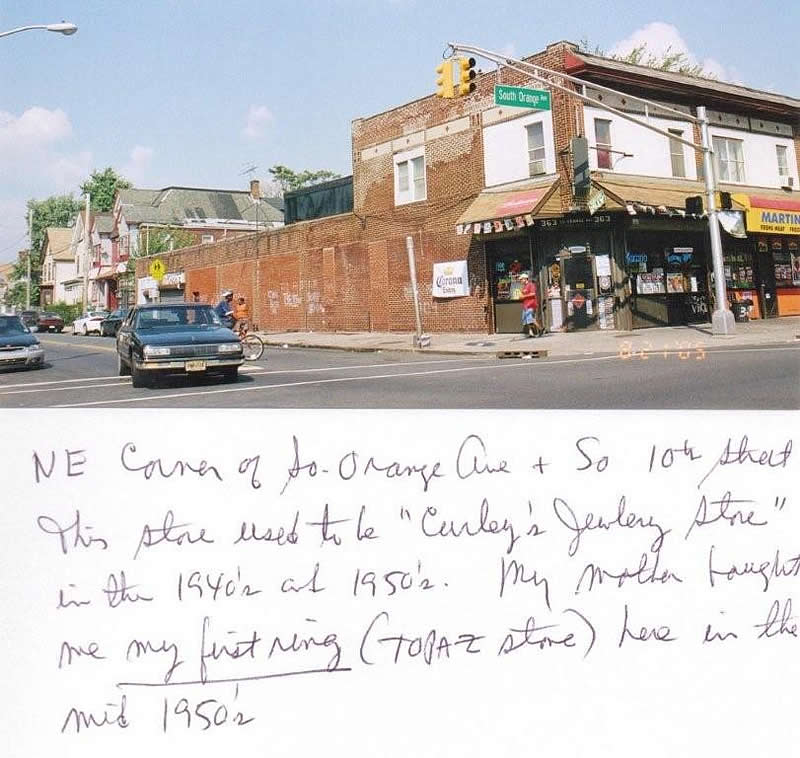 South Orange Ave
363
363
MARTIN
Corona
Corona
8 21 '05
NE Corner of So. Orange Ave + So 10th street
This store used to be "Curley's Jewlery Store"
in the 1940's and 1950's. My mother bought
me my first ring (TOPAZ stone) here in the
mid 1950's